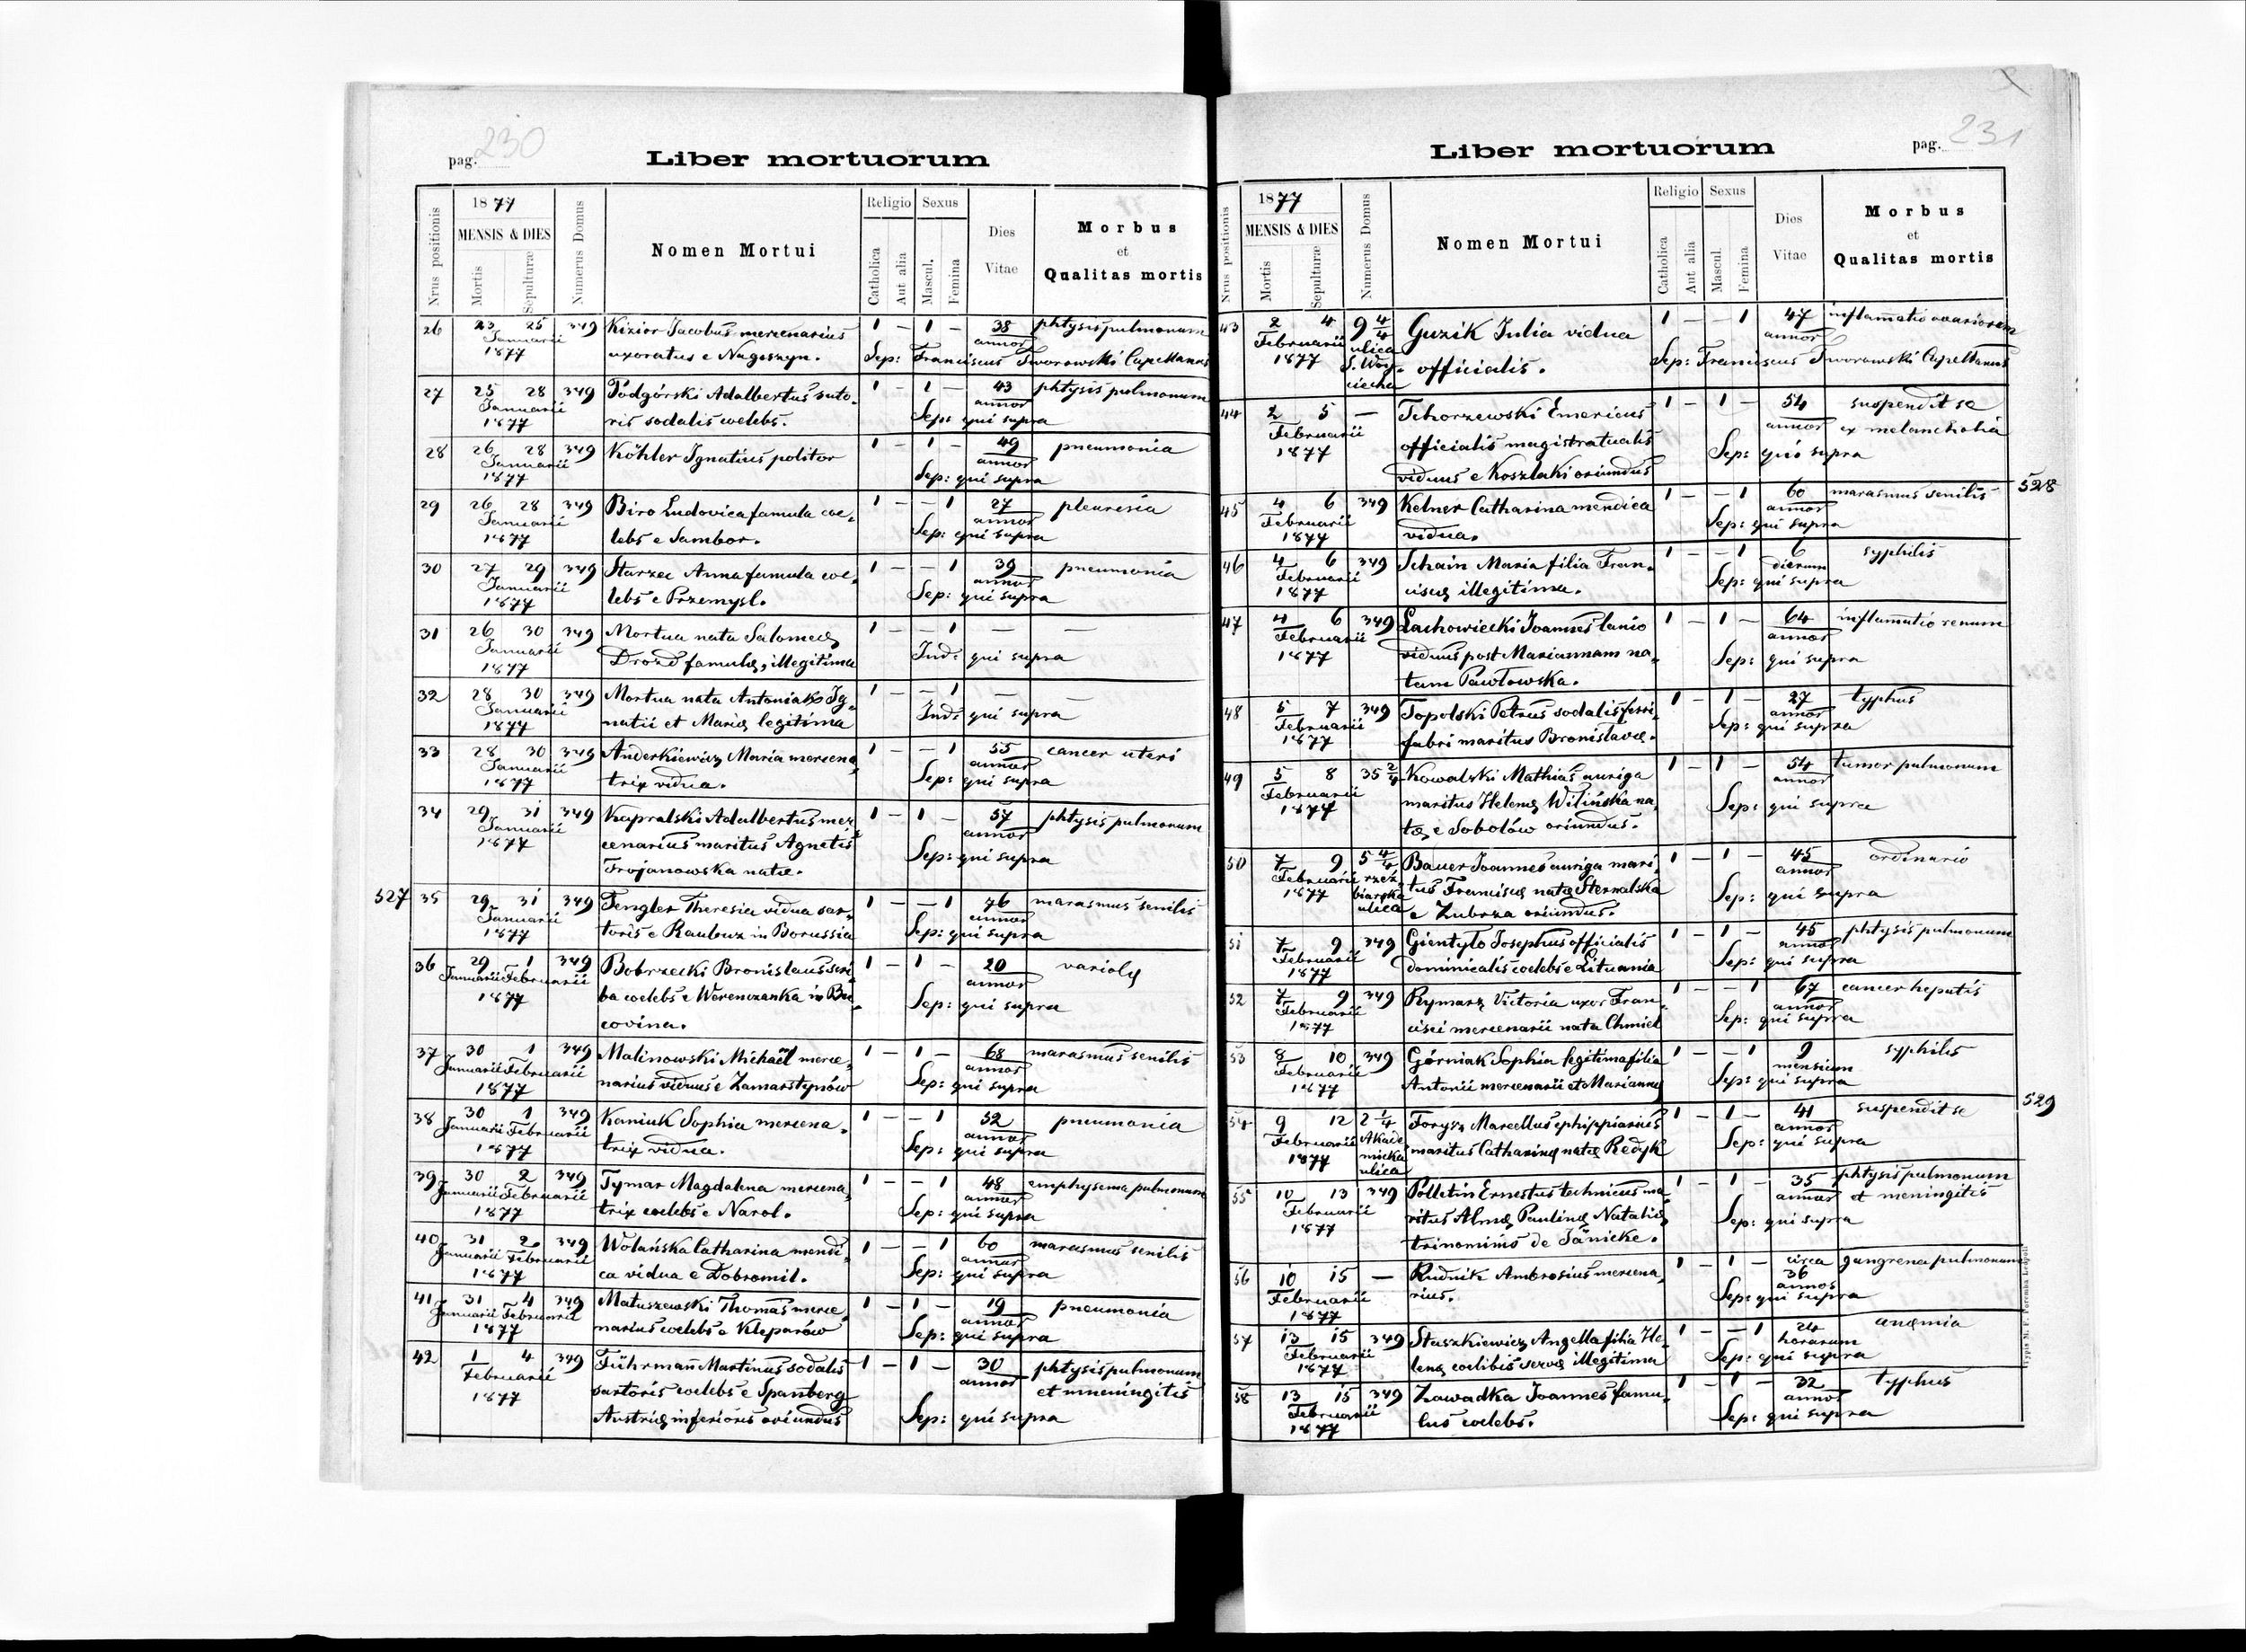 pag. 230
Liber mortuorum
Nrus positionis
1877
MENSIS & DIES
Mortis
Sepulturæ
Numerus Domus
Nomen Mortui
Religio
Catholica
Aut alia
Sexus
Mascul.
Femina
Dies
Vitae
Morbus
et
Qualitas mortis
26 23 25 349 Kizior Jacobus mercenarius 1 — 1 — 38 phtysis pulmonum
Januarii annor
1877 uxoratus e Nagoszyn. Sep: Franciscus Tworowski Capellanus
27 25 28 349 Podgórski Adalbertus suto- 1 — 1 — 43 phtysis pulmonum
Januarii annor
1877 ris sodalis coelebs. Sep: qui supra
28 26 28 349 Köhler Ignatius politor 1 — 1 — 49 pneumonia
Januarii annor
1877 Sep: qui supra
29 26 28 349 Biro Ludovica famula coe- 1 — — 1 27 pleuresia
Januarii annor
1877 lebs e Sambor. Sep: qui supra
30 27 29 349 Starzec Anna famula coe- 1 — — 1 39 pneumonia
Januarii annor
1877 lebs e Przemysl. Sep: qui supra
31 26 30 349 Mortua nata Salomeę 1 — — 1 — —
Januarii
1877 Drozd famulę, illegitima Ind: qui supra
32 28 30 349 Mortua nata Antoniak Ig- 1 — — 1 — —
Januarii
1877 natii et Marię legitima Ind: qui supra
33 28 30 349 Anderkiewicz Maria mercena- 1 — — 1 55 cancer uteri
Januarii annor
1877 trix vidua. Sep: qui supra
34 29 31 349 Kapralski Adalbertus mer- 1 — 1 — 57 phtysis pulmonum
Januarii annor
1877 cenarius maritus Agnetis Sep: qui supra
Trojanowska natæ.
527 35 29 31 349 Fengler Theresia vidua sar- 1 — — 1 76 marasmus senilis
Januarii annor
1877 toris e Raubuz in Borussia Sep: qui supra
36 29 1 349 Bobrzecki Bronislaus scri- 1 — 1 — 20 variolę
Januarii Februarii annor
1877 ba coelebs e Werenczanka in Bu- Sep: qui supra
covina.
37 30 1 349 Malinowski Michaël merce- 1 — 1 — 68 marasmus senilis
Januarii Februarii annor
1877 narius viduus e Zamarstynów Sep: qui supra
38 30 1 349 Kaniuk Sophia mercena- 1 — — 1 52 pneumonia
Januarii Februarii annor
1877 trix vidua. Sep: qui supra
39 30 2 349 Tymar Magdalena mercena- 1 — — 1 48 emphysema pulmonum
Januarii Februarii annor
1877 trix coelebs e Narol. Sep: qui supra
40 31 2 349 Wolańska Catharina mendi- 1 — — 1 60 marasmus senilis
Januarii Februarii annor
1877 ca vidua e Dobromil. Sep: qui supra
41 31 4 349 Matuszewski Thomas merce- 1 — 1 — 19 pneumonia
Januarii Februarii annor
1877 narius coelebs e Kleparów Sep: qui supra
42 1 4 349 Führmañ Martinus sodalis 1 — 1 — 30 phtysis pulmonum
Februarii annor et mneningitis
1877 sartoris coelebs e Spanberg
Austrię inferioris oriundus Sep: qui supra
Liber mortuorum
pag. 231
Nrus positionis
1877
MENSIS & DIES
Mortis
Sepulturæ
Numerus Domus
Nomen Mortui
Religio
Catholica
Aut alia
Sexus
Mascul.
Femina
Dies
Vitae
Morbus
et
Qualitas mortis
43 2 4 9 4/4 Guzik Julia vidua 1 — — 1 47 inflamatio ovariorum
Februarii ulica annor
1877 S. Woy- officialis. Sep: Franciscus Tworowski Capellanus
ciecha
44 2 5 — Tchorzewski Emericus 1 — 1 — 54 suspendit se
Februarii officialis magistratualis annor ex melancholia
1877 viduus e Koszlaki oriundus Sep: qui supra
528
45 4 6 349 Kelner Catharina mendica 1 — — 1 60 marasmus senilis
Februarii annor
1877 vidua. Sep: qui supra
46 4 6 349 Schain Maria filia Fran- 1 — — 1 6 syphilis
Februarii dierum
1877 ciscę illegitima. Sep: qui supra
47 4 6 349 Lachowiecki Joannes lanio 1 — 1 — 64 inflamatio renum
Februarii viduus post Mariannam na- annor
1877 tam Pawłowska. Sep: qui supra
48 5 7 349 Topolski Petrus sodalis ferri- 1 — 1 — 27 typhus
Februarii annor
1877 fabri maritus Bronislavæ. Sep: qui supra
49 5 8 35 2/4 Kowalski Mathias auriga 1 — 1 — 54 tumor pulmonum
Februarii maritus Helenę Wilińska na- annor
1877 tæ, e Sobolów oriundus. Sep: qui supra
50 7 9 5 4/4 Bauer Joannes auriga mari- 1 — 1 — 45 ordinario
Februarii rzeź- tus Franciscę natę Sternalska annor
1877 biarska e Zubrza oriundus. Sep: qui supra
ulica
51 7 9 349 Gientyło Josephus officialis 1 — 1 — 45 phtysis pulmonum
Februarii annor
1877 dominicalis coelebs e Lituania Sep: qui supra
52 7 9 349 Rymarz Victoria uxor Fran- 1 — — 1 67 cancer hepatis
Februarii annor
1877 cisci mercenarii nata Chmiel Sep: qui supra
53 8 10 349 Górniak Sophia legitima filia 1 — — 1 9 syphilis
Februarii mensium
1877 Antonii mercenarii et Mariannę Sep: qui supra
529
54 9 12 2 1/4 Forysz Marcellus ephippiarius 1 — 1 — 41 suspendit se
Februarii Akade- maritus Catharinę natę Redyk annor
1877 micka Sep: qui supra
ulica
55 10 13 349 Polletin Ernestus technicus ma- 1 — 1 — 35 phtysis pulmonum
Februarii ritus Almę Paulinę Natalię annor et meningitis
1877 trinominis de Jänicke. Sep: qui supra
56 10 15 — Rudnik Ambrosius mercena- 1 — 1 — circa gangrena pulmonum
Februarii rius. 36 annos
1877 Sep: qui supra
57 13 15 349 Staszkiewicz Angella filia He- 1 — — 1 24 anęmia
Februarii horarum
1877 lenę coelibis servę illegitima Sep: qui supra
58 13 15 349 Zawadka Joannes famu- 1 — 1 — 32 typhus
Februarii annor
1877 lus coelebs. Sep: qui supra
Typis M. F. Poremba Leopoli